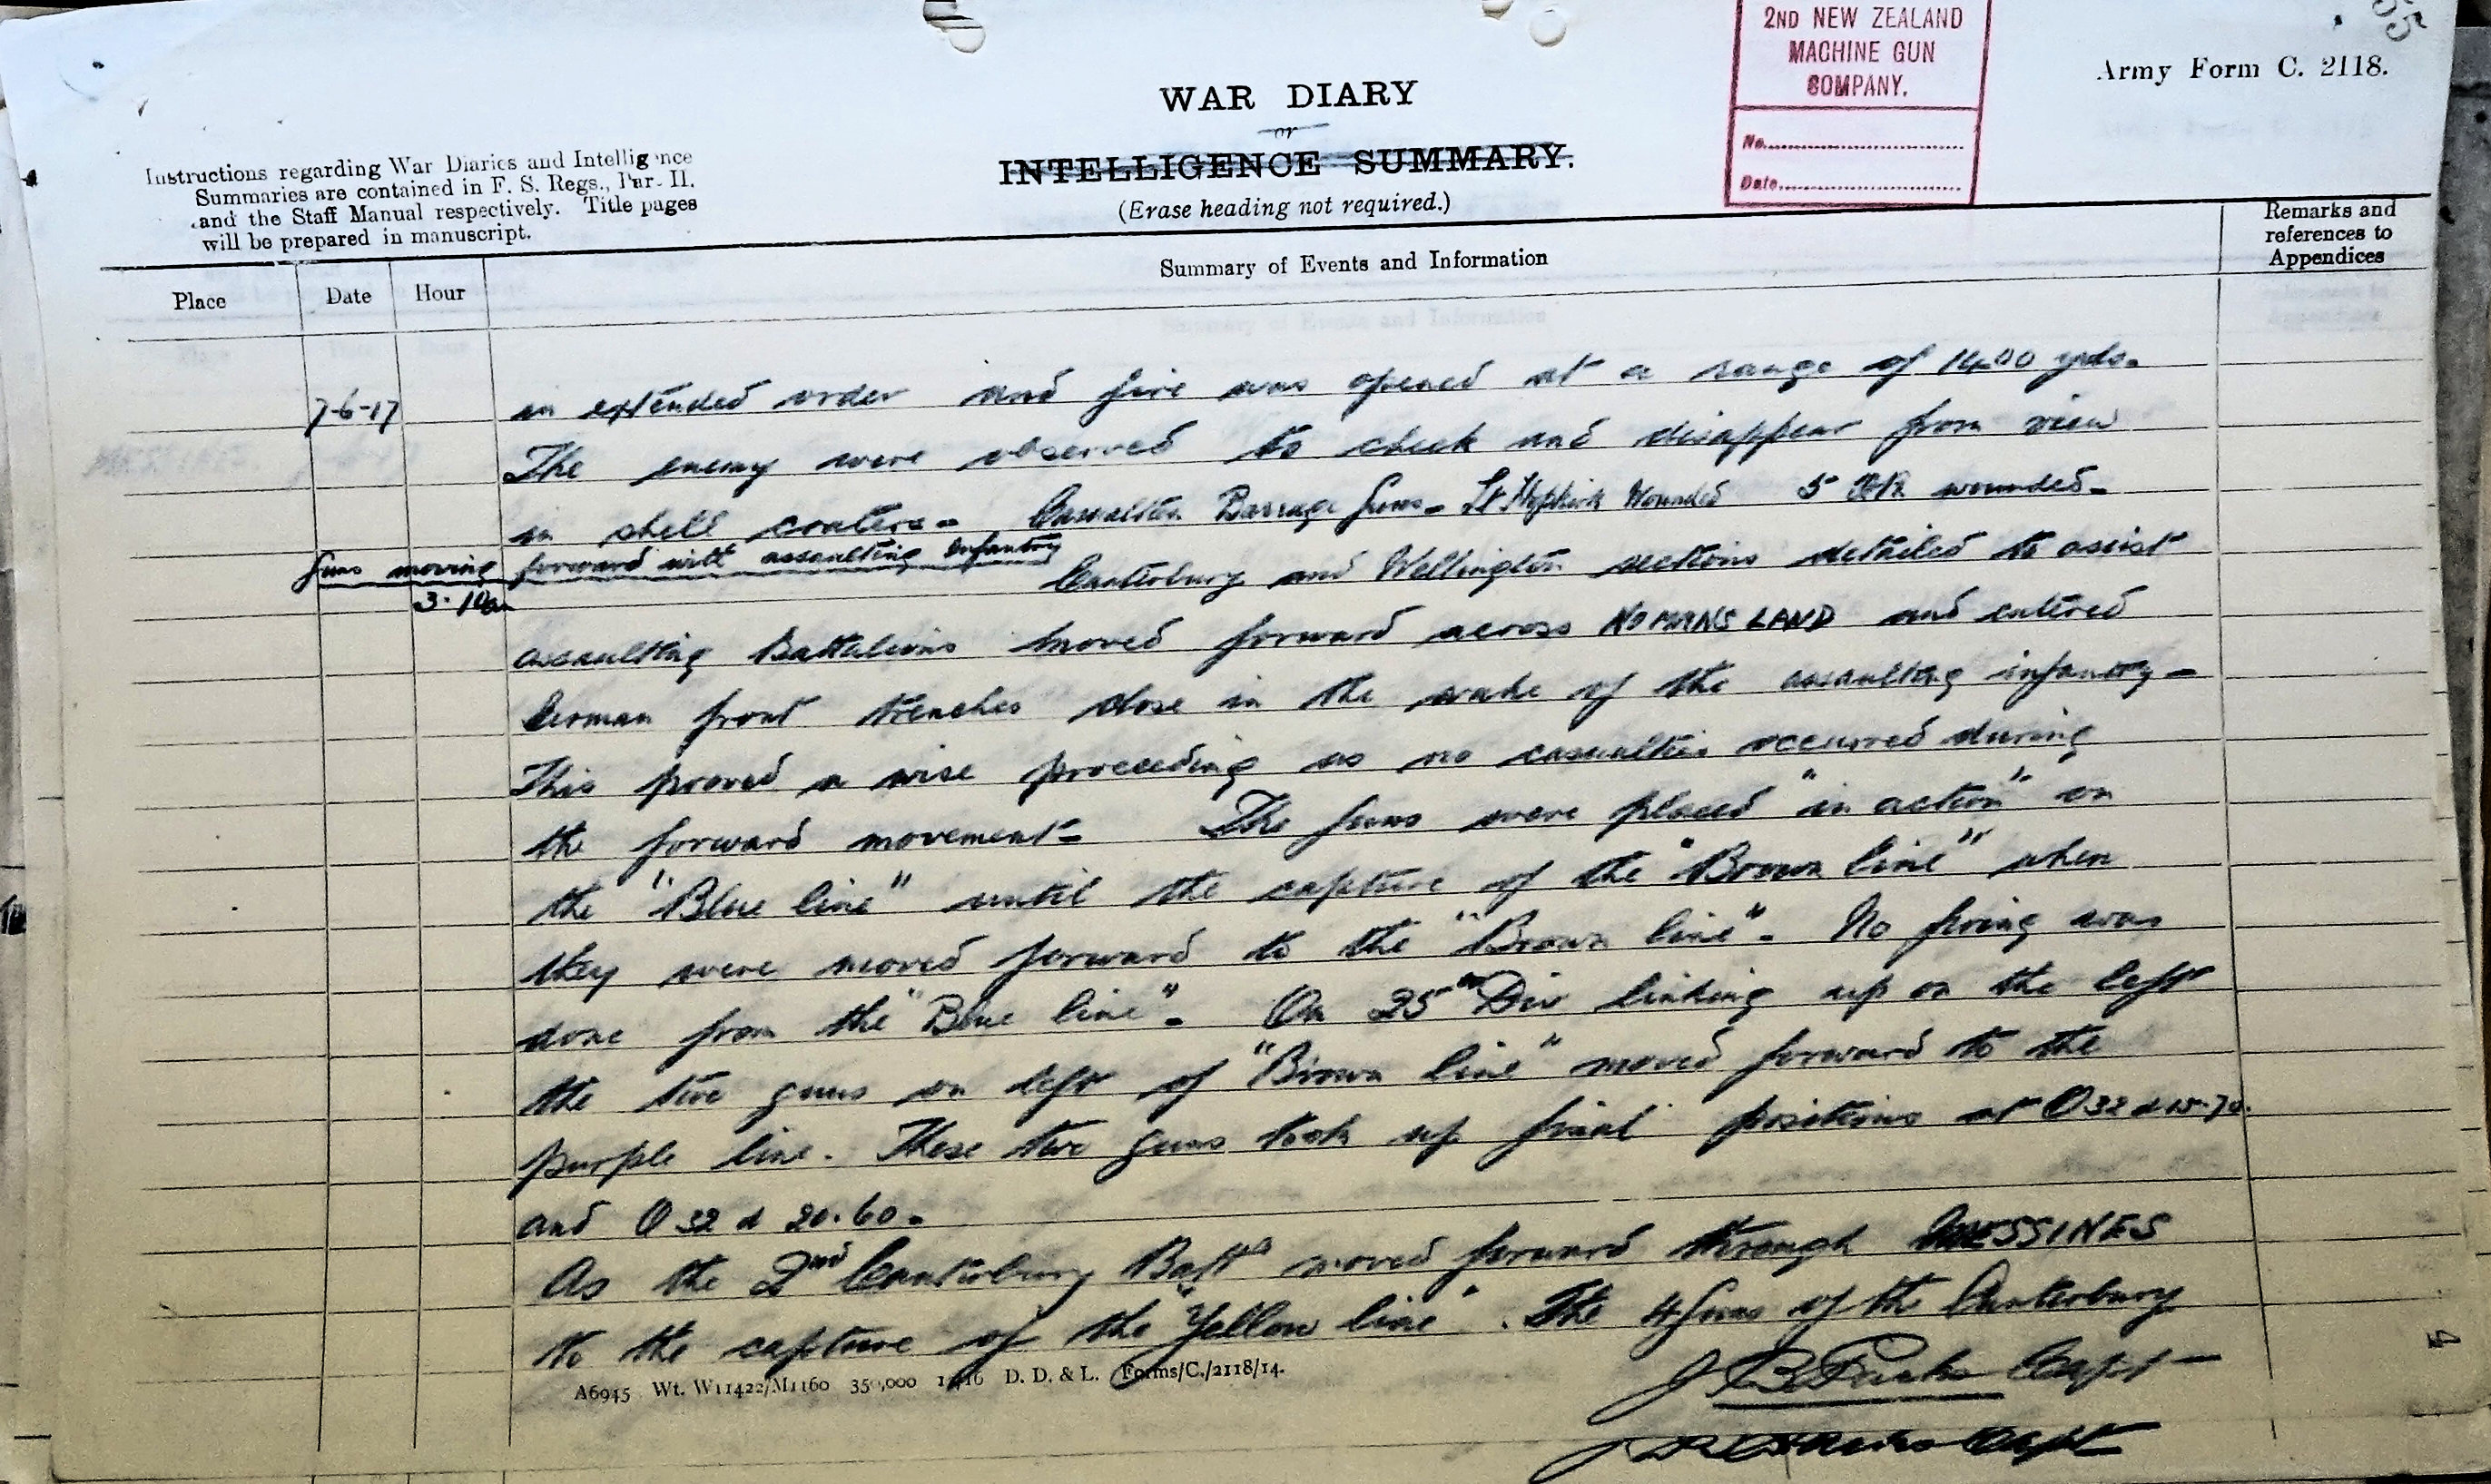 55
2ND NEW ZEALAND
MACHINE GUN
COMPANY.
No.
Date
Army Form C. 2118.
WAR DIARY
or
INTELLIGENCE SUMMARY.
(Erase heading not required.)
Instructions regarding War Diaries and Intelligence
Summaries are contained in F. S. Regs., Part II.
and the Staff Manual respectively. Title pages
will be prepared in manuscript.
Place
Date
Hour
Summary of Events and Information
Remarks and
references to
Appendices
7-6-17 in extended order and fire was opened at a range of 1400 yds.
The enemy were observed to check and disappear from view
in shell craters. Casualties Barrage Guns. Lt Hopkirk Wounded 5 O/R wounded.
Guns moving forward with assaulting Infantry
Canterbury and Wellington sections detailed to assist
3.10am
assaulting Battalions moved forward across NOMANS LAND and entered
German front trenches close in the wake of the assaulting infantry.
This proved a wise proceeding as no casualties occurred during
the forward movement. The guns were placed "in action" on
the "Blue line" until the capture of the "Brown line" when
they were moved forward to the "Brown line". No firing was
done from the "Blue line". On 25th Div linking up on the left
the two guns on left of "Brown line" moved forward to the
purple line. These two guns took up final positions at O 32 d 15.70.
and O 32 d 20.60.
As the 2nd Canterbury Battn moved forward through MESSINES
to the capture of the "Yellow line". The 4 Guns of the Canterbury
A6945 Wt. W11422/M1160 350,000 12/16 D. D. & L. Forms/C./2118/14.
J B Parks Capt
Capt
4